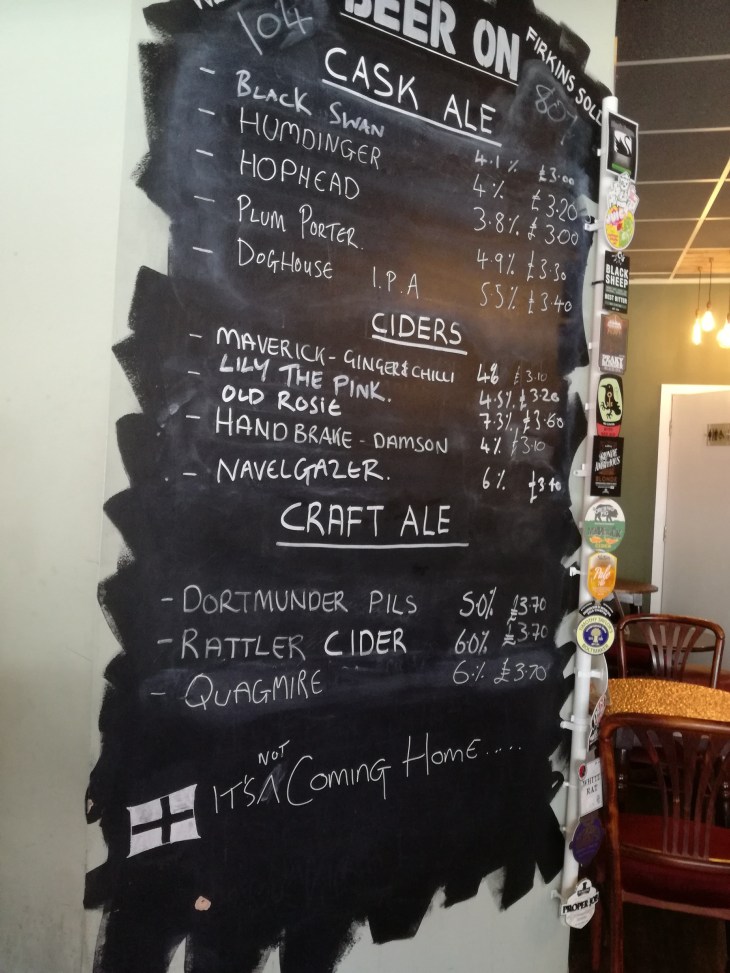 104
BEER ON
FIRKINS SOLD
807
CASK ALE
- BLACK SWAN 4.1% £3.00
- HUMDINGER 4% £3.20
- HOPHEAD 3.8% £3.00
- PLUM PORTER. 4.9% £3.30
- DOGHOUSE I.P.A 5.5% £3.40
CIDERS
- MAVERICK - GINGER & CHILLI 4% £3.10
- LILY THE PINK. 4.5% £3.20
OLD ROSIE 7.3% £3.60
- HANDBRAKE - DAMSON 4% £3.10
- NAVELGAZER. 6% £3.40
CRAFT ALE
- DORTMUNDER PILS 50% £3.70
- RATTLER CIDER 60% £3.70
- QUAGMIRE 6.% £3.70
NOT
IT'S COMING HOME.....
BLACK SHEEP
BEST BITTER
WHITE RAT
PROPER JOB